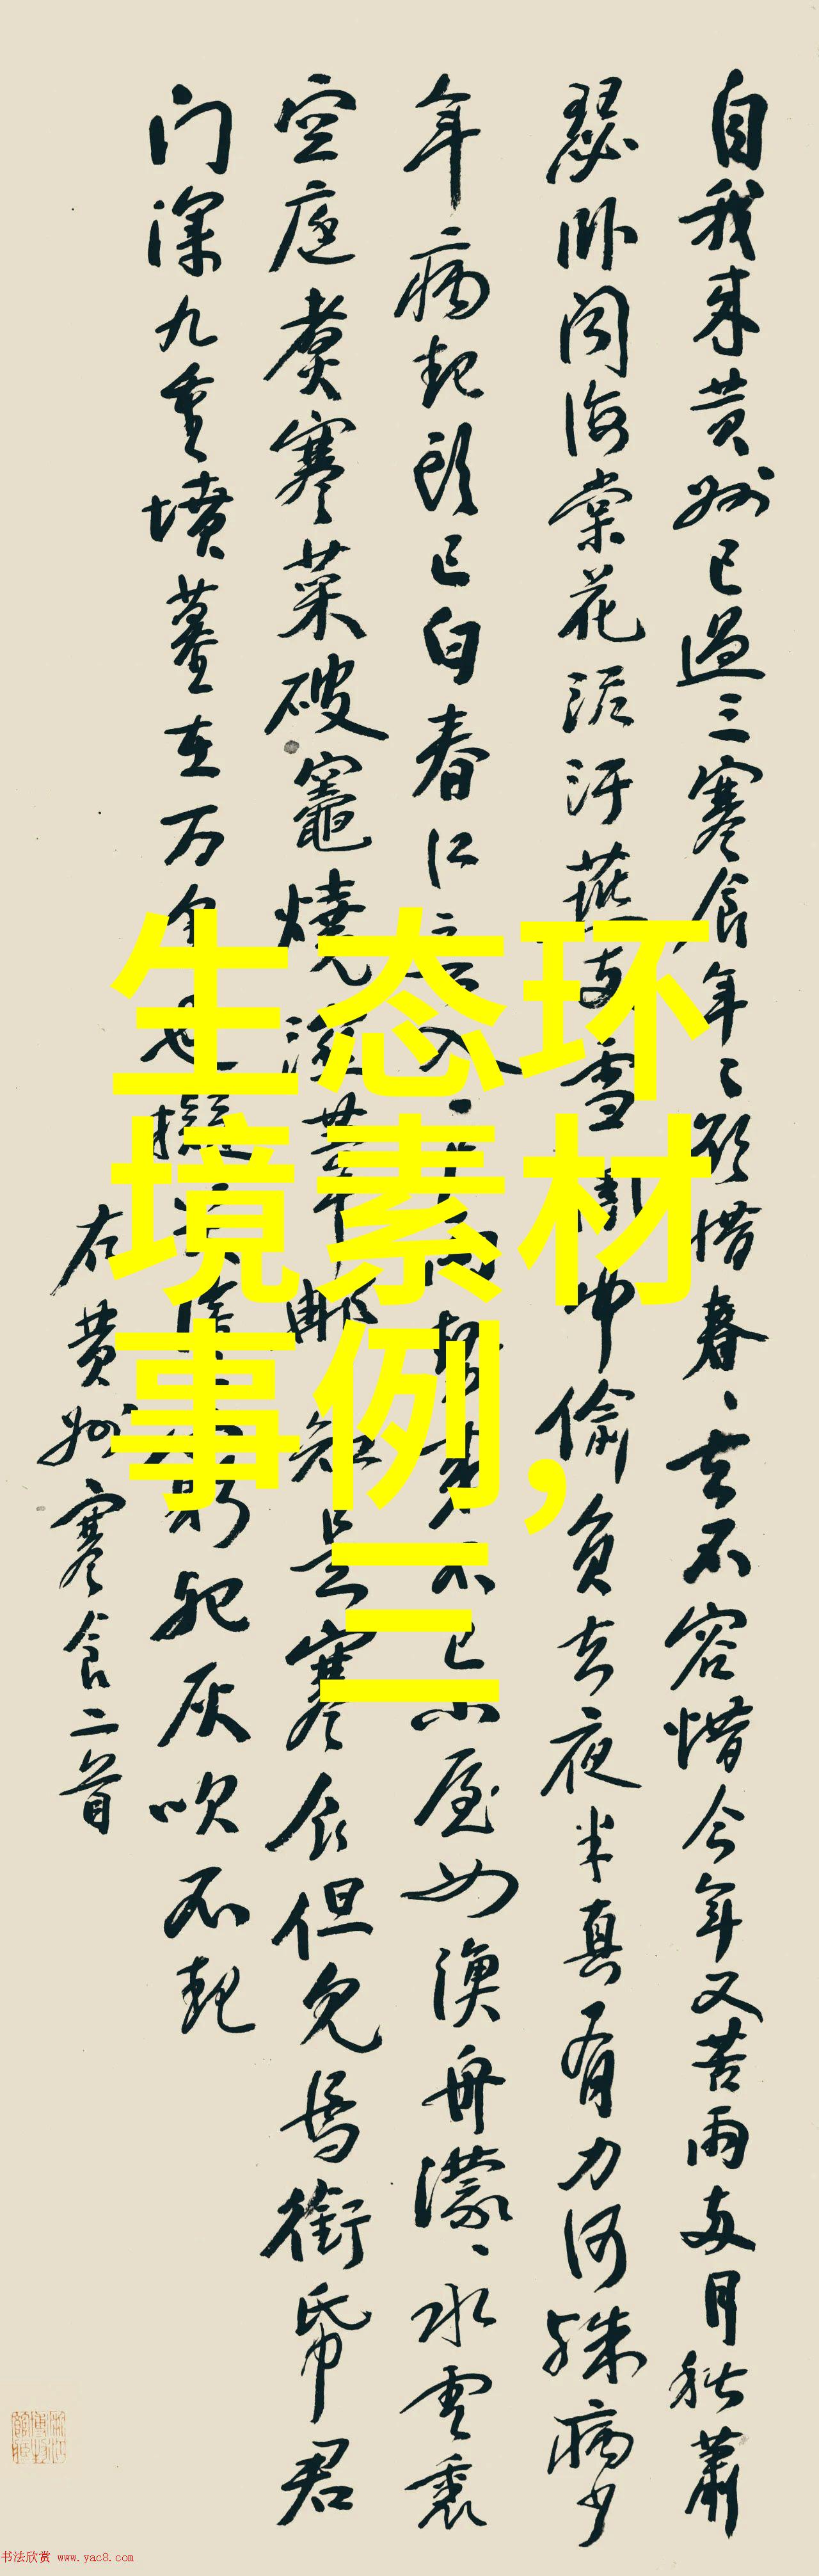 自我来黄州已過三寒食年〻欲惜春〻去不容惜今年又苦雨两月秋蕭
瑟卧闻海棠花泥汙燕支雪闇中偷負去夜半真有力何殊病少
年病起頭已白春江欲入户雨势来不已小屋如漁舟濛〻水雲裏
空庖煮寒菜破竈燒湿苇那知是寒食但见烏銜帋君
门深九重墳墓在万里也擬哭途窮死灰吹不起
右黄州寒食二首
生态环
境素材
事例,
三
书法欣赏 www.yac8.com